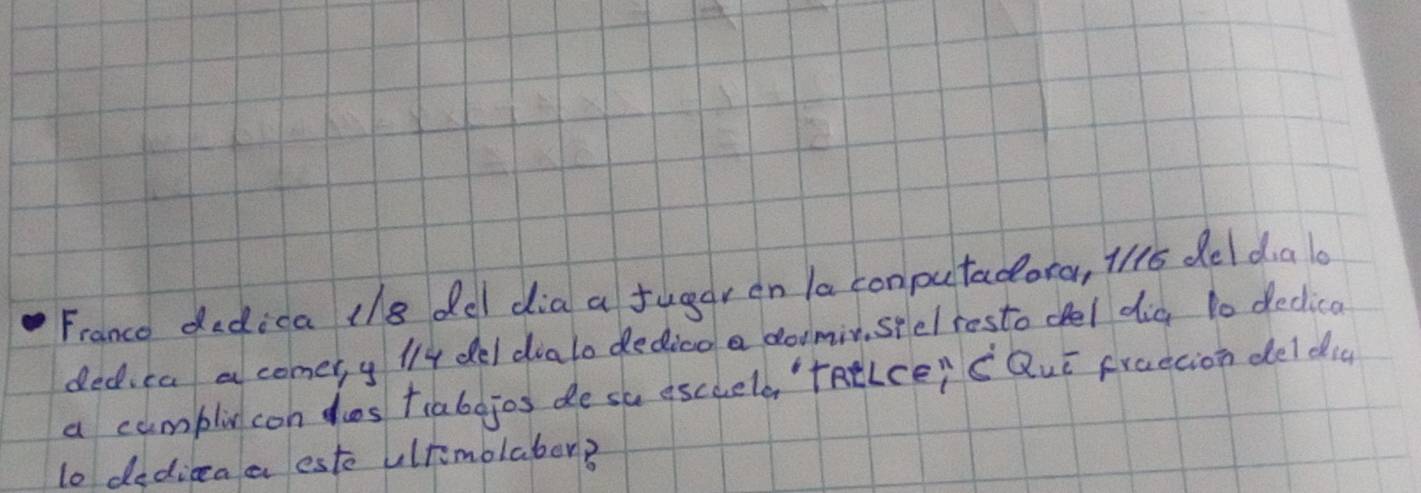 Franco dedica 1/8 del dia a jugar en la conputadora, 1/16 del dia lo
dedica a comer, y 1/4 del dia lo dedico a dormir. si el resto del dia lo dedica
a cumplir con los trabajos de su escuela "TRILCE", ¿Qué fracción del dia
lo dedica a este ultimo labor?